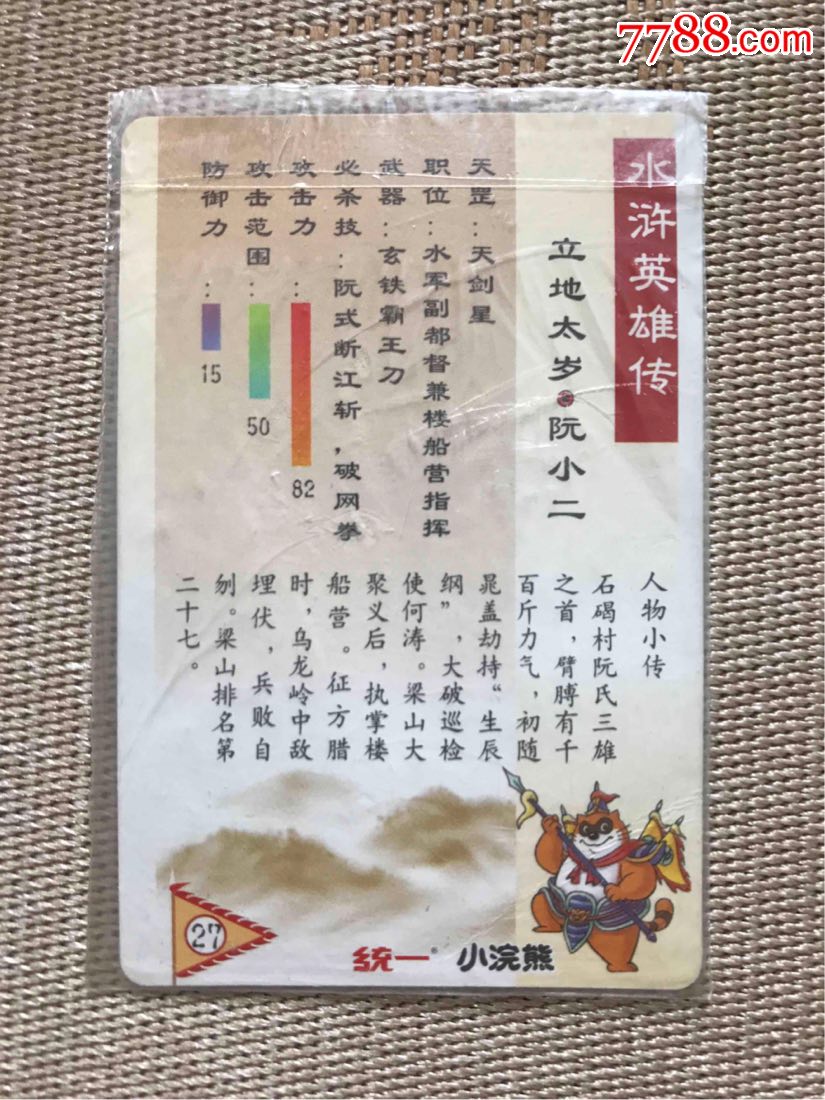 7788.com
水浒英雄传
立地太岁
阮小二
天罡：天剑星
职位：水军副都督兼楼船营指挥
武器：玄铁霸王刀
必杀技：阮式断江斩，破网拳
攻击力：
82
攻击范围：
50
防御力：
15
人物小传
石碣村阮氏三雄
之首，臂膊有千
百斤力气，初随
晁盖劫持“生辰
纲”，大破巡检
使何涛。梁山大
聚义后，执掌楼
船营。征方腊
时，乌龙岭中敌
埋伏，兵败自
刎。梁山排名第
二十七。
27
统一® 小浣熊